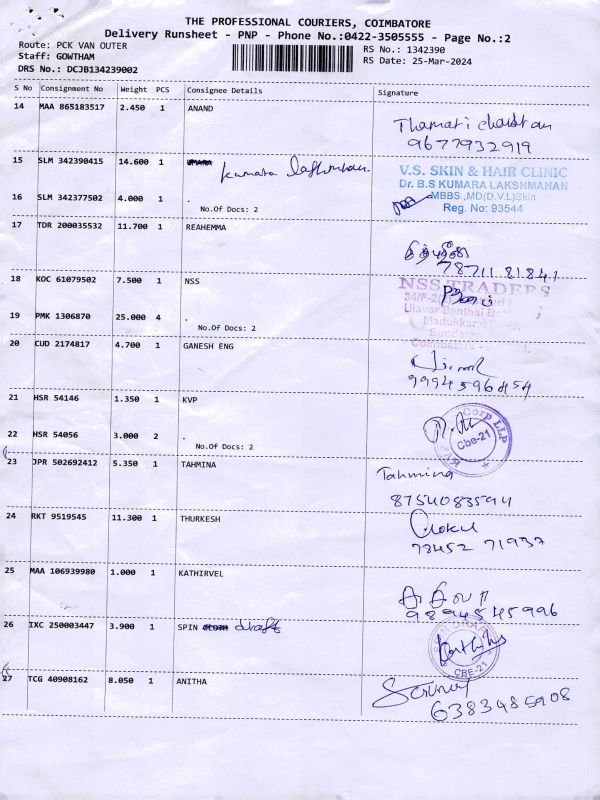 THE PROFESSIONAL COURIERS, COIMBATORE
Delivery Runsheet - PNP - Phone No.:0422-3505555 - Page No.:2
Route: PCK VAN OUTER
Staff: GOWTHAM
DRS No.: DCJB134239002
RS No.: 1342390
RS Date: 25-Mar-2024
S No Consignment No Weight PCS Consignee Details Signature
14 MAA 865183517 2.450 1 ANAND
9677932919
15 SLM 342390415 14.600 1 kumara
V.S. SKIN & HAIR CLINIC
Dr. B.S KUMARA LAKSHMANAN
MBBS.,MD(D.V.L)Skin
Reg. No: 93544
16 SLM 342377502 4.000 1 .
No.Of Docs: 2
17 TDR 200035532 11.700 1 REAHEMMA
78711 81841
18 KOC 61079502 7.500 1 NSS
NSS TRADERS
19 PMK 1306870 25.000 4 .
No.Of Docs: 2
20 CUD 2174817 4.700 1 GANESH ENG
9994396454
21 HSR 54146 1.350 1 KVP
Corp LLP
Cbe-21
22 HSR 54056 3.000 2 .
No.Of Docs: 2
23 JPR 502692412 5.350 1 TAHMINA
Tahmina
8754083594
24 RKT 9519545 11.300 1 THURKESH
Gokul
73452 71937
25 MAA 106939980 1.000 1 KATHIRVEL
9894545996
26 IXC 250003447 3.900 1 SPIN draft
CBE-21
27 TCG 40908162 8.050 1 ANITHA
6383485908